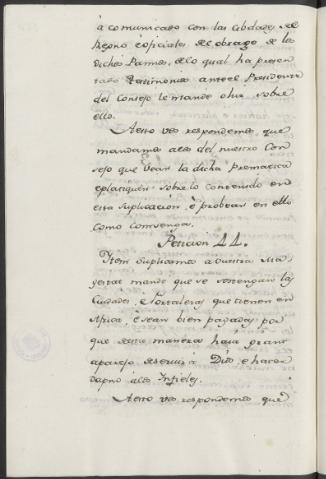 a comunicado con las Cibdades del
Reyno é oficiales del obrage de los
dichos Pannos, delo qual ha presen
tado testimonio ante el Presidente
del Consejo le mande oir sobre
ello.
A esto vos respondemos, que
mandamos alos del nuestro Con
sejo que vean la dicha Prematica
é platiquen sobre lo contenido en
esta suplicacion, é probean en ello
como convenga.
Peticion 44.
Item suplicamos a vuestra Ma
gestat mande que se sostengan las
Ciudades, é Fortalezas que tienen en
Africa, é sean bien pagadas por
que desta manera haia gran
aparejo de servir a Dios é hacer
dapno alos Infieles.
A esto vos respondemos que